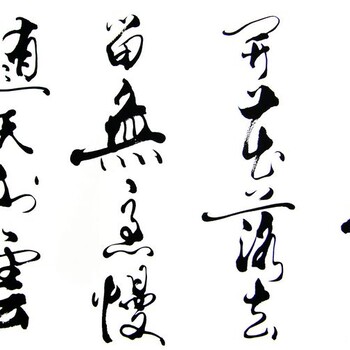 開花落去
留無意慢
隨天外雲